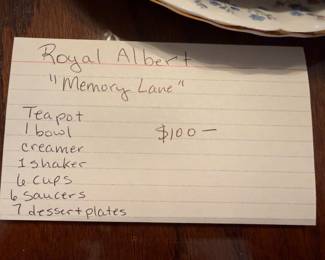 Royal Albert
"Memory Lane"
Teapot
1 bowl
$100—
creamer
1 shaker
6 cups
6 saucers
7 dessert plates